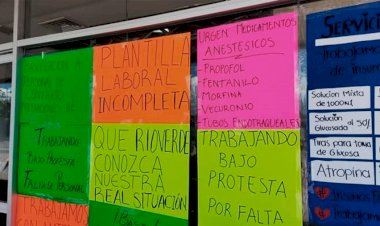 PLANTILLA
LABORAL
INCOMPLETA
QUE RIOVERDE
CONOZCA
NUESTRA
REAL SITUACIÓN
URGEN MEDICAMENTOS
ANESTESICOS =
- PROPOFOL
FENTANILO
MORFINA
VECURONIO
TUBOS ENDOTRAQUEALES
TRABAJANDO
BAJO
PROTESTA
POR FALTA
TRABAJANDO
BAJO PROTESTA
FALTA DE PERSONAL
TRABAJAMOS
SERVICIO
Solución Mixta
de 1000ml
Solución
Glucosada al 50%
Tiras para toma
de Glucosa
Atropina